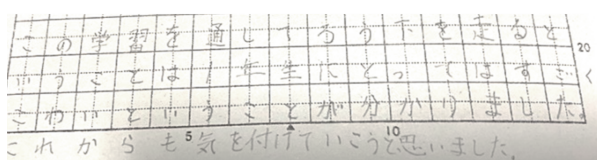 この学習を通してろう下を走ると
いうことは1年生にとってはすごく
こわいということが分かりました。
これからも気を付けていこうと思いました。
20
5
10